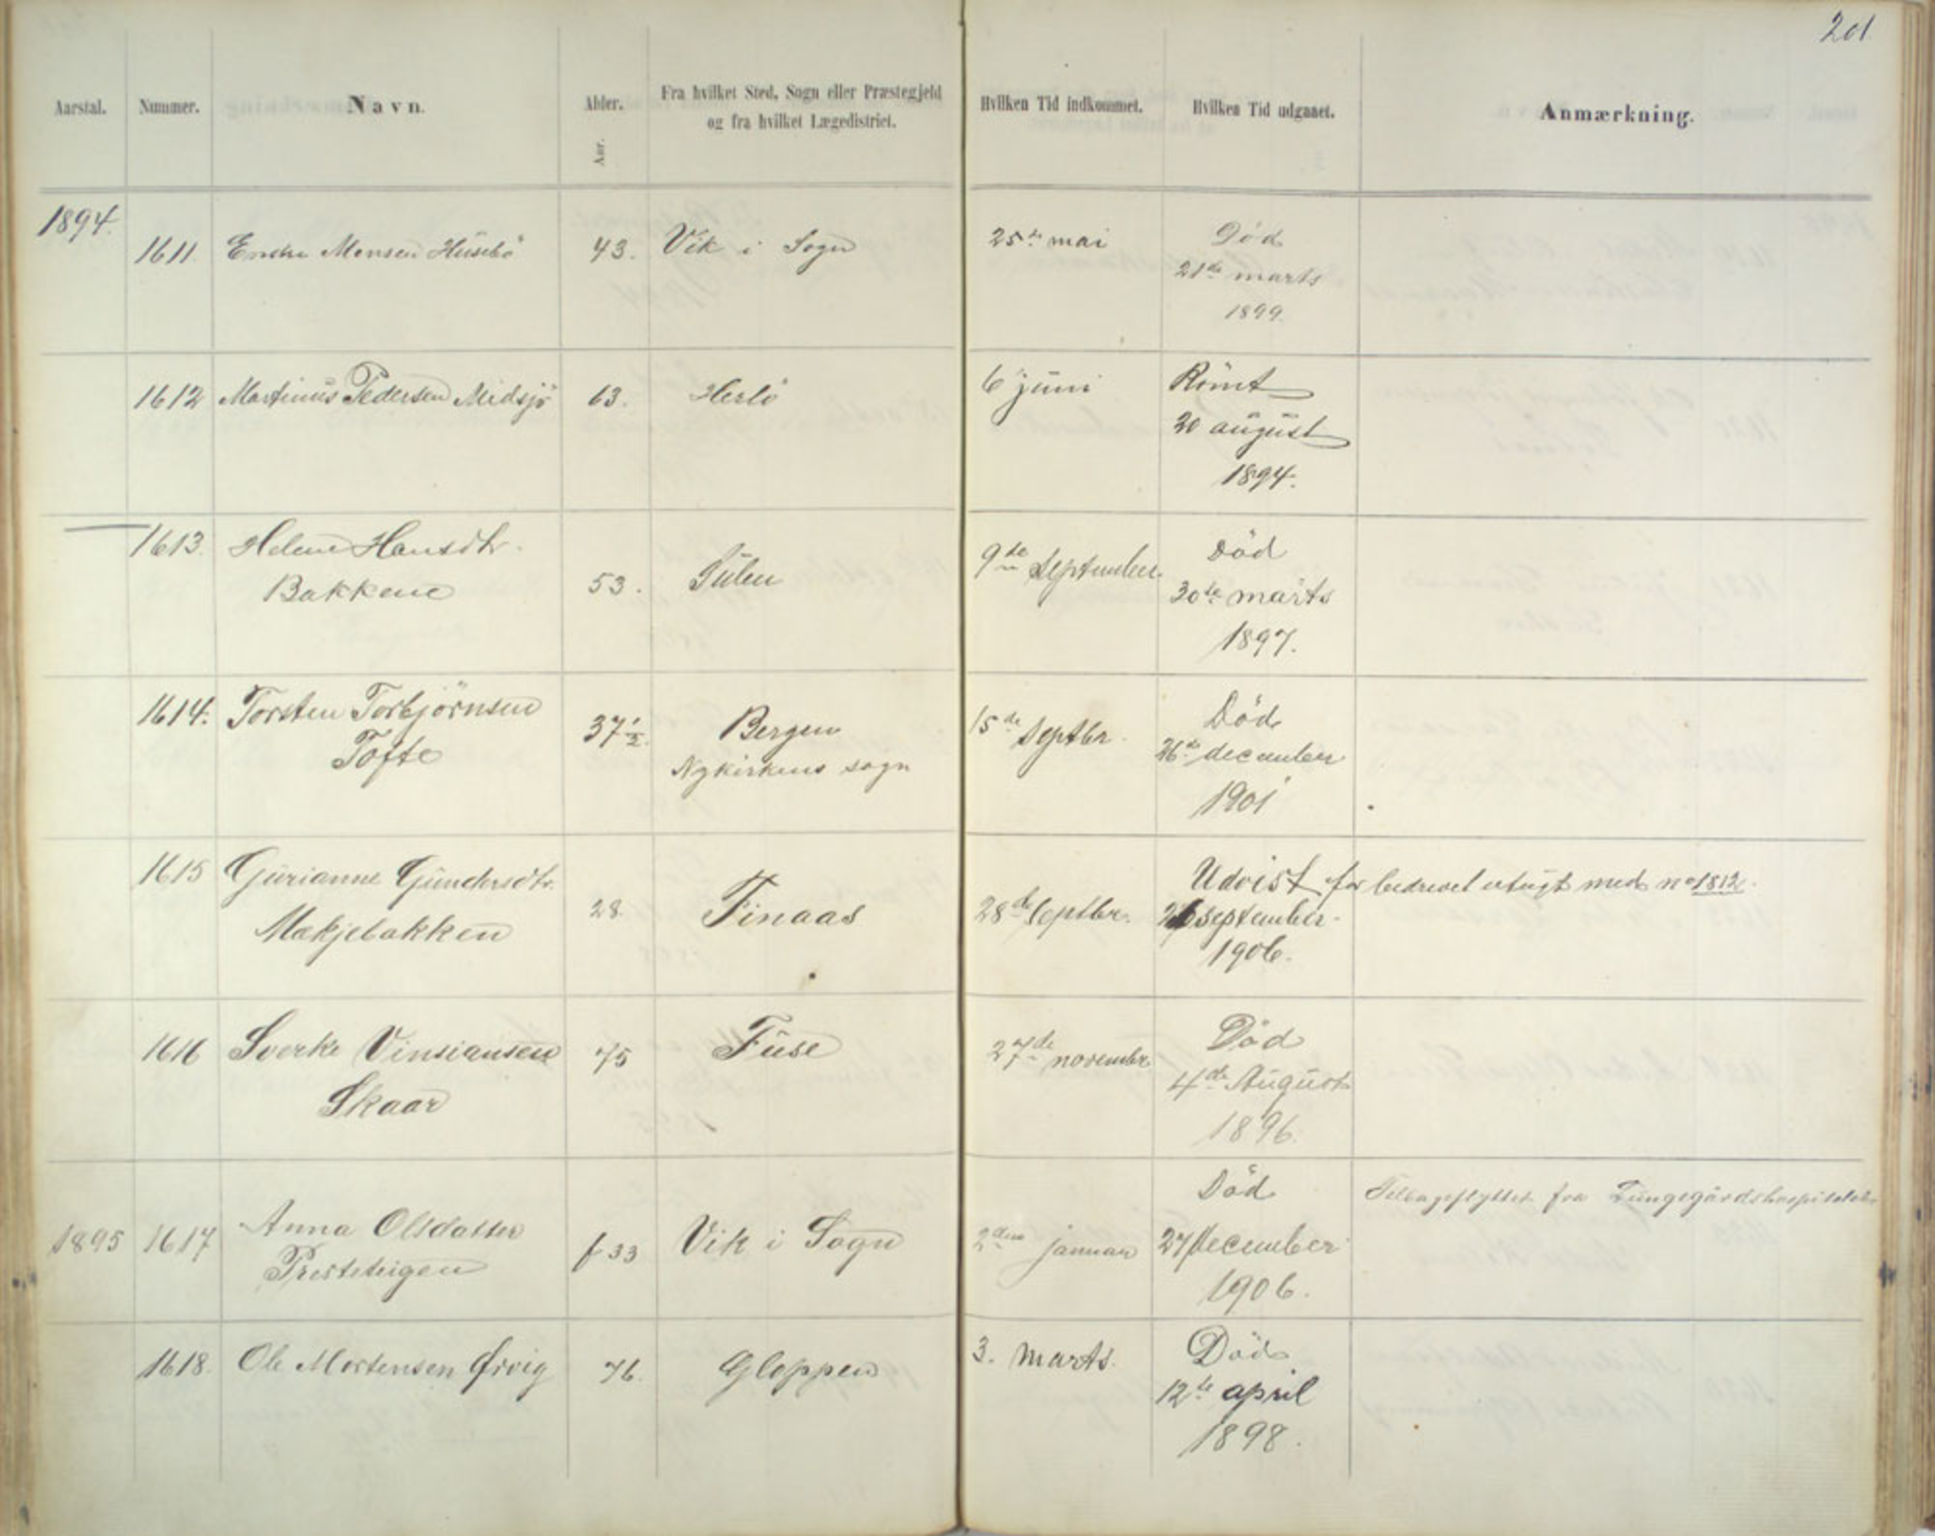 201
Aarstal. Nummer. Navn. Alder. Aar. Fra hvilket Sted, Sogn eller Præstegjeld og fra hvilket Lægedistrict. Hvilken Tid indkommet. Hvilken Tid udgaaet. Anmærkning.
1894.
1611 Endre Monsen Husebö 43. Vik i Sogn 25de mai Död
21de marts
1899.
1612 Martinus Pedersen Midsjö 63. Herlö 6 juni Römt
20 august
1894.
1613. Helene Hansdtr.
Bakkene 53. Gulen 9de September. Död
30te marts
1897.
1614. Torsten Torbjörnsen
Tofte 37 1/2. Bergen
Nykirkens sogn 15de Septbr. Död
26de december
1901
1615 Gurianne Gundersdtr.
Mækjebakken 28. Finaas 28de Septbr. Udvist for bedrevet utugt med no 1812.
september.
1906.
1616 Sverke Vinsiansen
Skaar 75 Fuse 27de novembr. Död
4de August
1896.
1895 1617 Anna Olsdatter
Prestteigen f 33 Vik i Sogn 2den januar Död
27 December
1906.
Tilbageflyttet fra Lungegårdshospitalet
1618. Ole Mortensen Ørvig 76. Gloppen 3. marts. Död
12te april
1898.